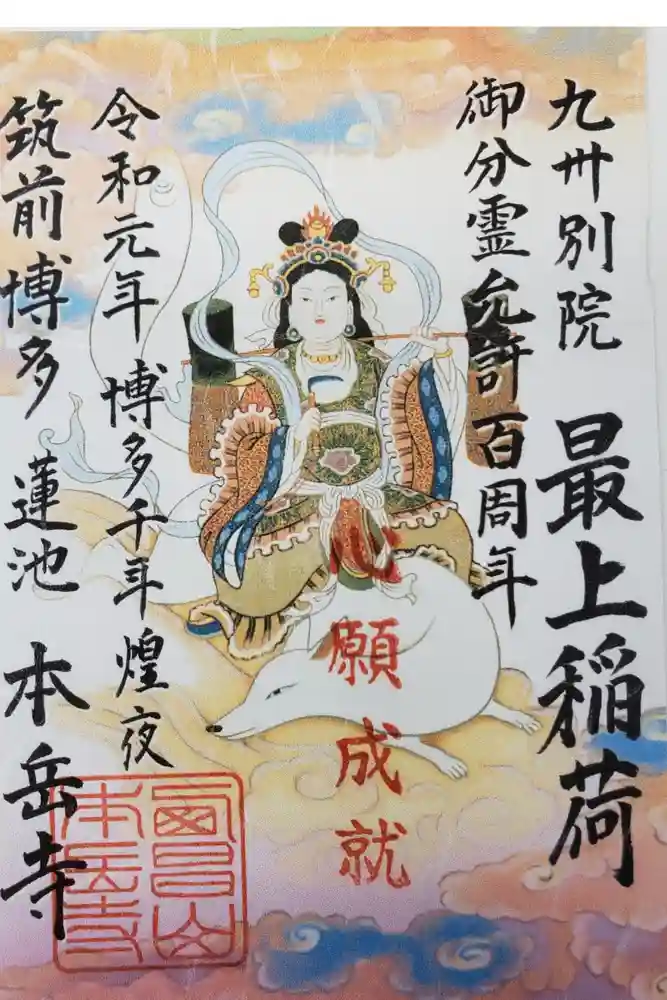 九卅別院 最上稲荷
御分霊允許百周年
心願成就
令和元年 博多千年煌夜
筑前博多 蓮池 本岳寺
冨昌山
本岳寺